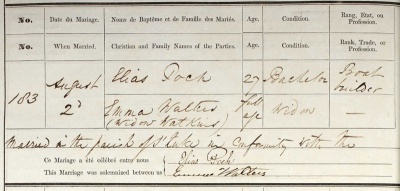 No. Date du Mariage. Noms de Baptême et de Famille des Mariés. Age. Condition. Rang, État, ou Profession.
No. When Married. Christian and Family Names of the Parties. Age. Condition. Rank, Trade, or Profession.
183 August 2d
Elias Poch 27 Bachelor Boat builder
Emma Walters full age widow —
(widow Watkins)
Married in the parish of St Luke in Conformity with the
Ce Mariage a été célébré entre nous Elias Poch
This Marriage was solemnized between us Emma Walters